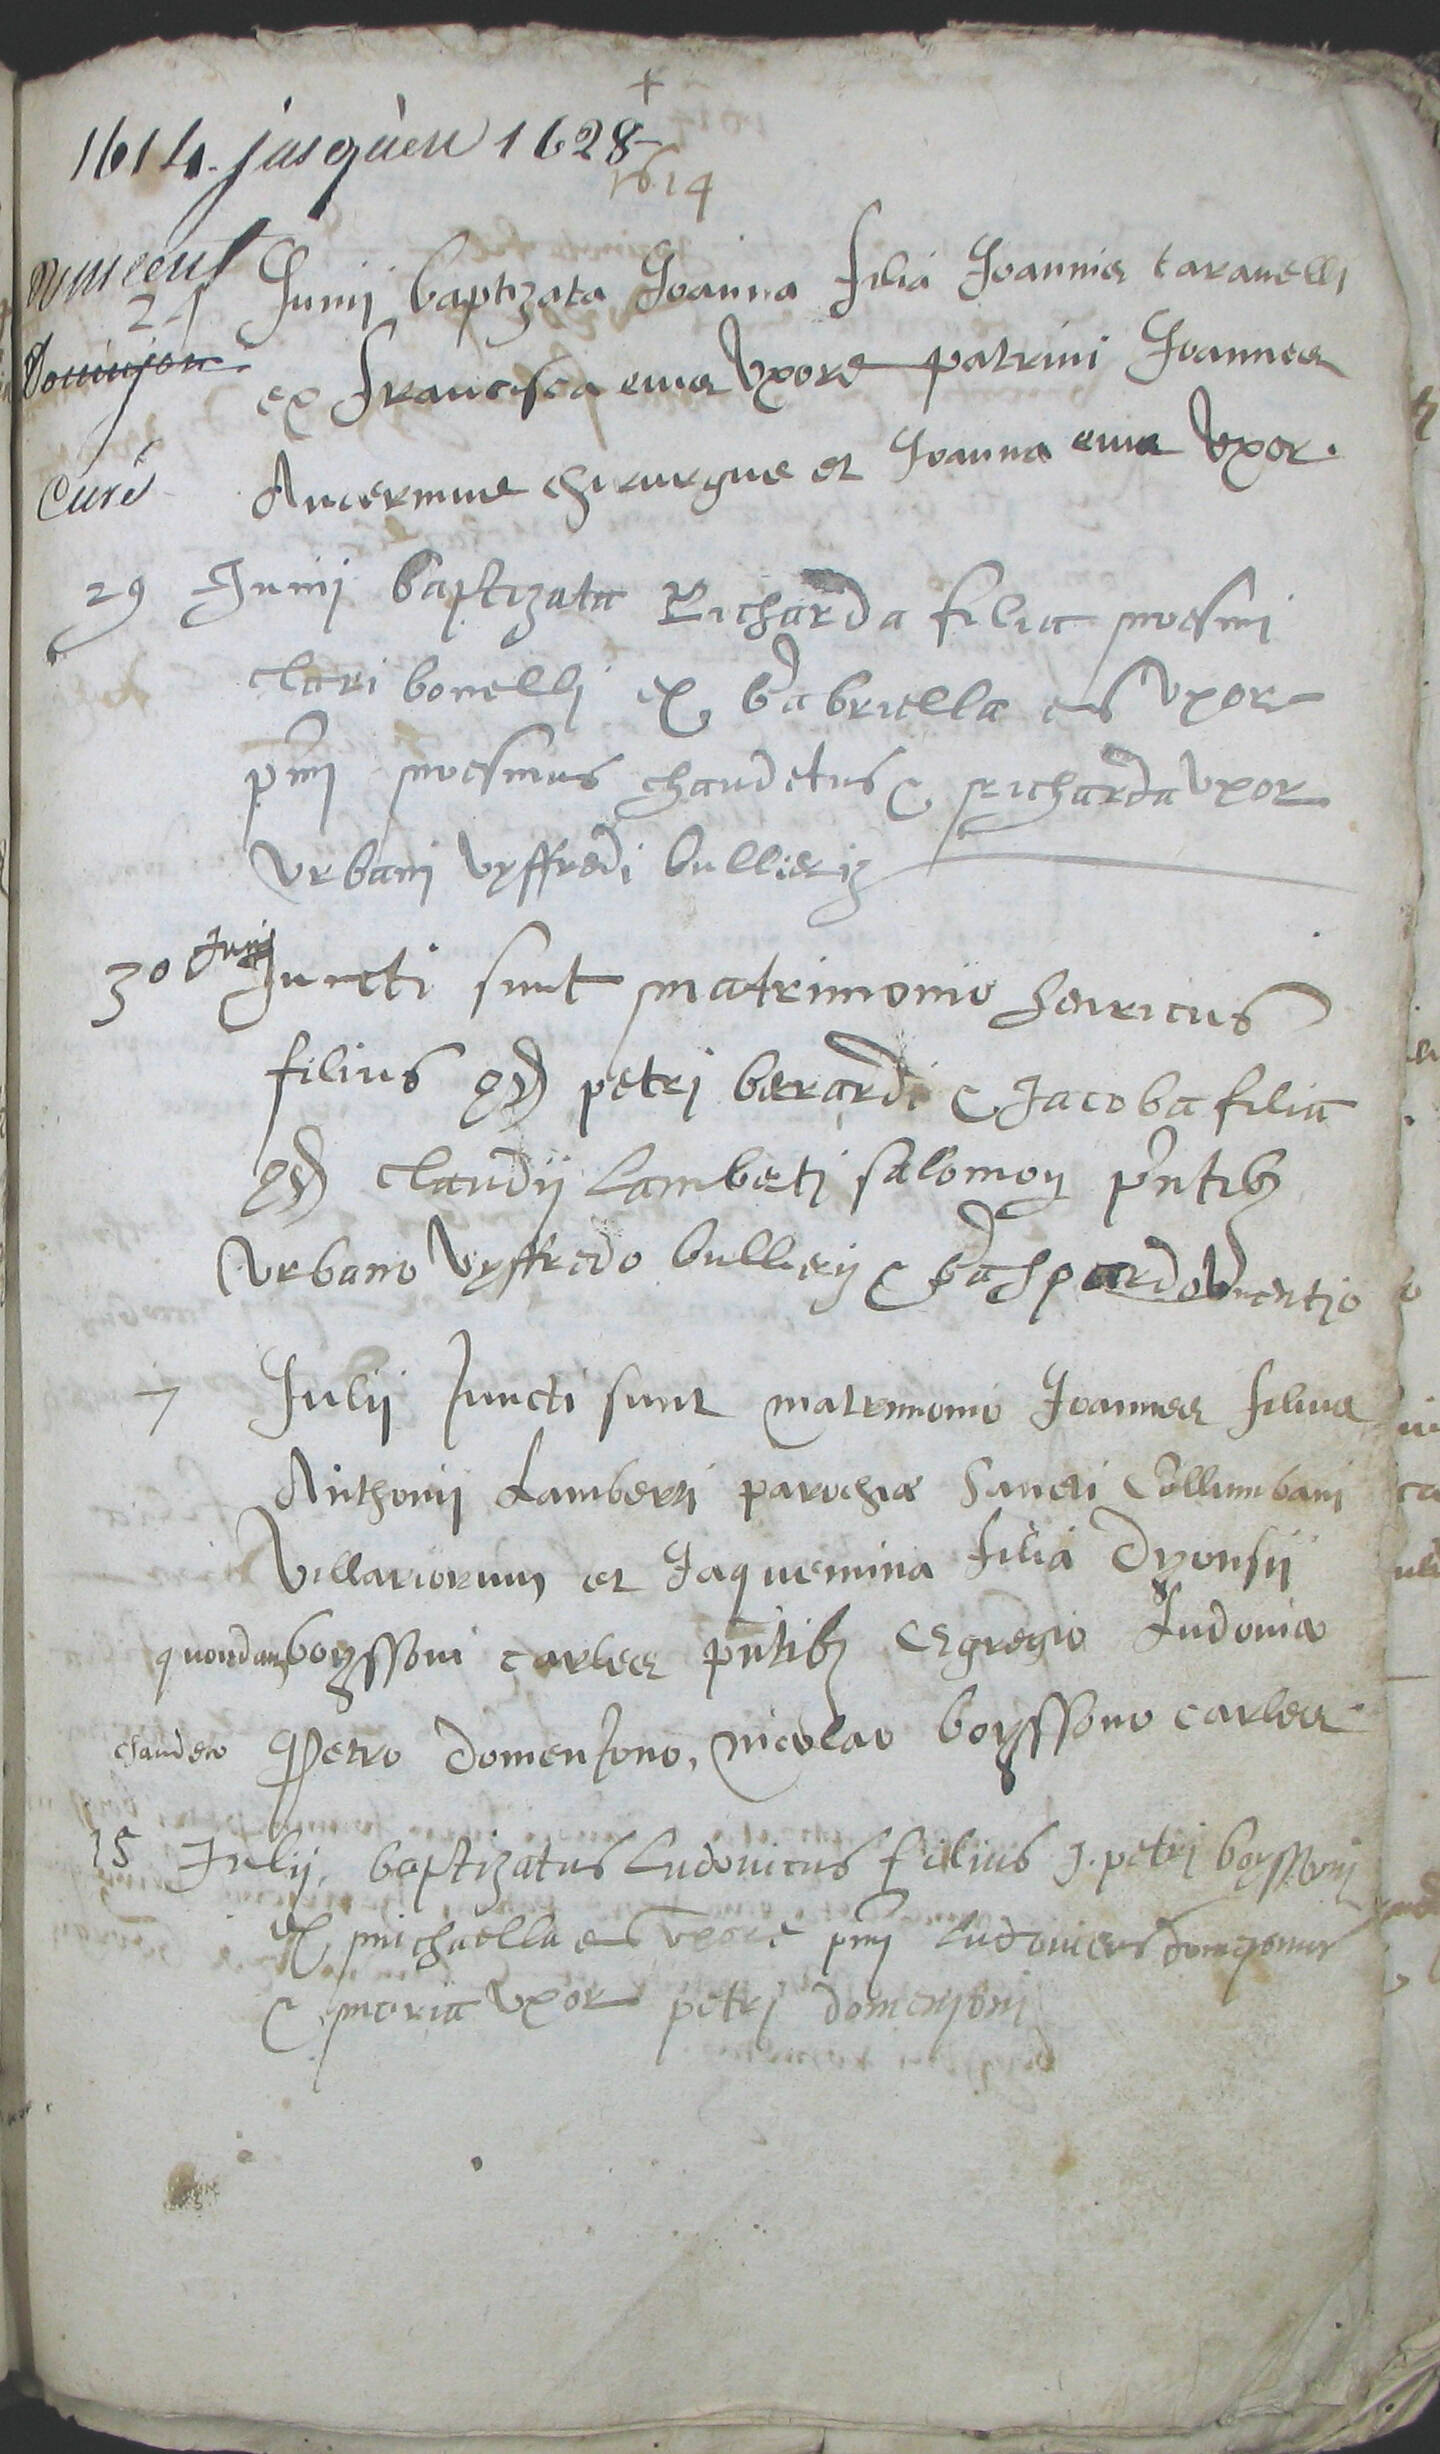 +
1614. jusqu'en 1628
1614
Vincent
24 Junij baptizata Joanna filia Joannis taravelli
Dominjon
ex Francisca eius Uxore patrini Joannes
Curé
Ancermus chirurgus et Joanna eius Uxor.
29 Junij baptizata Richarda filia noesmi
clari bonelli ex Gabriella eius Uxore
pnj noesmus chaudetus & Richarda Uxor
Urbani Vyffredi bullierij
30 Junij Juncti sunt matrimonio henricus
filius qd petrj berardi & Jacoba filia
qd claudij Lamberti salomon pntib
Urbano Vyffredo bullierij & Gaspardo Vincentio
7 Julij Juncti sunt matrimonio Joannes filius
Anthonij Lamberti parochiæ Sancti Collumbani
Villariorum et Jaquemina filia Dyonisii
quondam boyssoni carles pntib Egregio Ludovico
chaudeto Petro domenJono, nicolao boyssono carles
15 Julij. baptizatus Ludovicus filius J. petrj boyssonj
ex michaella eius uxore pnj Ludovicus domenjonus
& maria Uxor petrj domenjonj